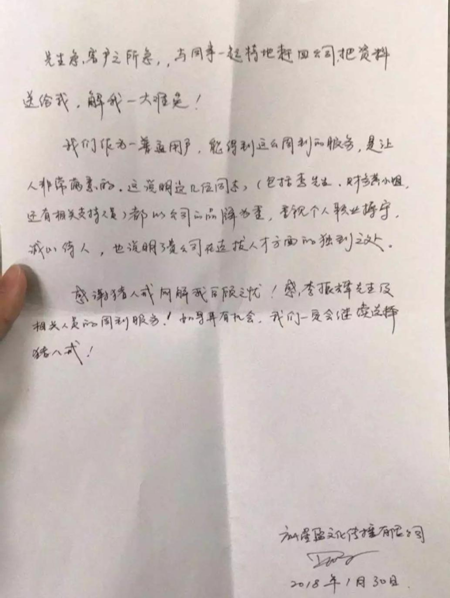 先生急客户之所急,,与同事一起特地赶回公司,把资料
送给我,解我一大难题!
我们作为一普通用户,能得到这么周到的服务,是让
人非常满意的。这说明这几位同事,(包括李先生、财务小姐,
还有相关支持人员)都以公司的品牌为重,重视个人职业操守,
诚以待人,也说明了贵公司在选拔人才方面的独到之处。
感谢猪八戒网解我司燃之忧!感,李振辉先生及
相关人员的周到服务!如果再有机会,我们一定会继续选择
猪八戒!
文化传播有限公司
2018年1月30日.